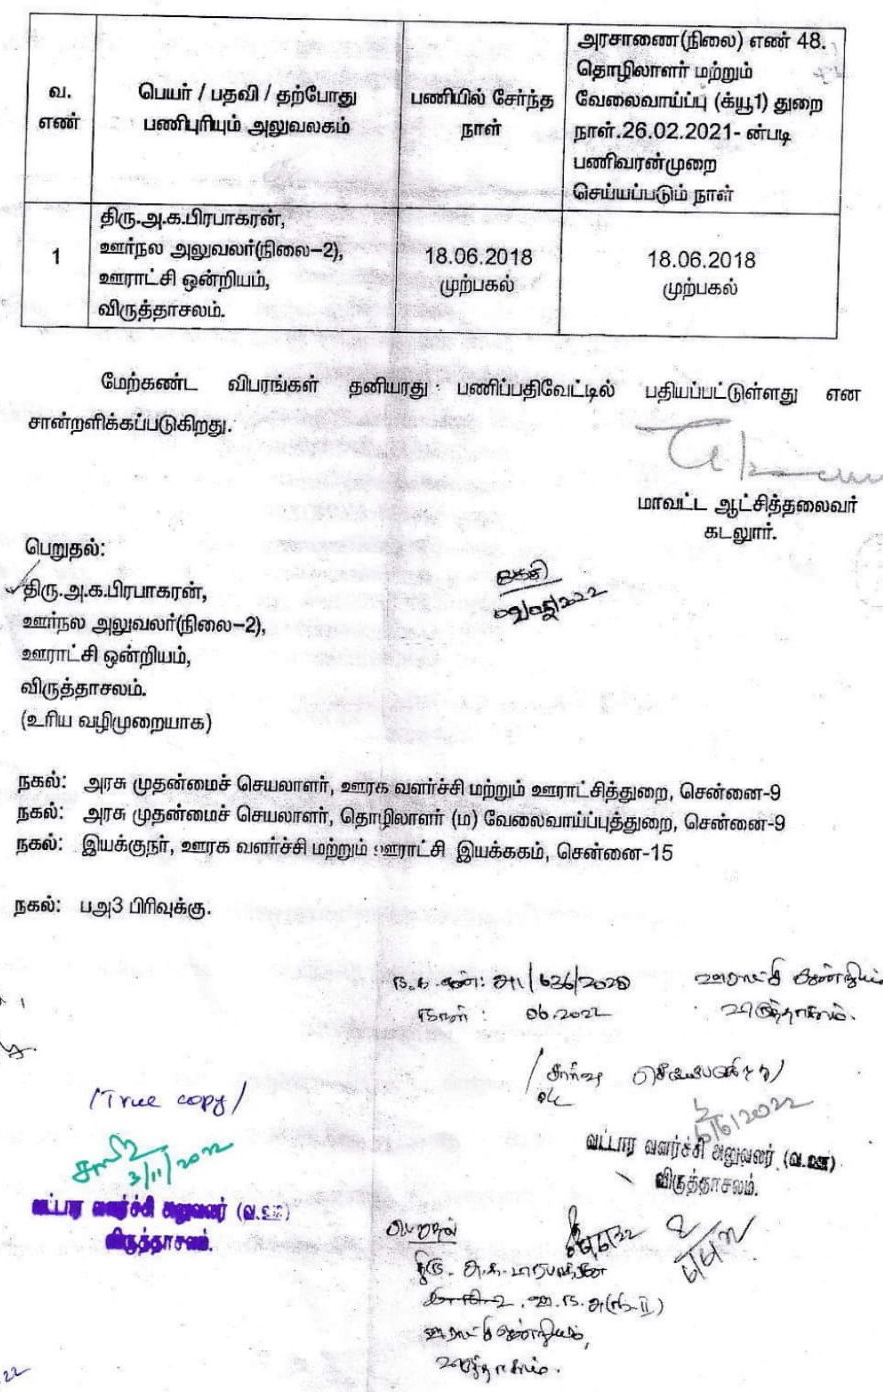 வ.
எண்
பெயர் / பதவி / தற்போது
பணிபுரியும் அலுவலகம்
பணியில் சேர்ந்த
நாள்
அரசாணை(நிலை) எண் 48.
தொழிலாளர் மற்றும்
வேலைவாய்ப்பு (க்யூ1) துறை
நாள்.26.02.2021- ன்படி
பணிவரன்முறை
செய்யப்படும் நாள்
1
திரு.அ.க.பிரபாகரன்,
ஊர்நல அலுவலர்(நிலை-2),
ஊராட்சி ஒன்றியம்,
விருத்தாசலம்.
18.06.2018
முற்பகல்
18.06.2018
முற்பகல்
மேற்கண்ட விபரங்கள் தனியரது பணிப்பதிவேட்டில் பதியப்பட்டுள்ளது என
சான்றளிக்கப்படுகிறது.
மாவட்ட ஆட்சித்தலைவர்
கடலூர்.
பெறுதல்:
திரு.அ.க.பிரபாகரன்,
ஊர்நல அலுவலர்(நிலை-2),
ஊராட்சி ஒன்றியம்,
விருத்தாசலம்.
(உரிய வழிமுறையாக)
நகல்: அரசு முதன்மைச் செயலாளர், ஊரக வளர்ச்சி மற்றும் ஊராட்சித்துறை, சென்னை-9
நகல்: அரசு முதன்மைச் செயலாளர், தொழிலாளர் (ம) வேலைவாய்ப்புத்துறை, சென்னை-9
நகல்: இயக்குநர், ஊரக வளர்ச்சி மற்றும் ஊராட்சி இயக்ககம், சென்னை-15
நகல்: பஅ3 பிரிவுக்கு.
ந.க.எண்: அ1/636/2020 ஊராட்சி ஒன்றியம்
நாள் : 06.2022 விருத்தாசலம்.
/True copy/
3/11/2022
வட்டார வளர்ச்சி அலுவலர் (வ.ஊ)
விருத்தாசலம்.
6/6/2022
வட்டார வளர்ச்சி அலுவலர் (வ.ஊ)
விருத்தாசலம்.
பெறுதல்
திரு. அ.க. பிரபாகரன்
ஊ.ந.அ(நி-II)
ஊராட்சி ஒன்றியம்,
விருத்தாசலம்.